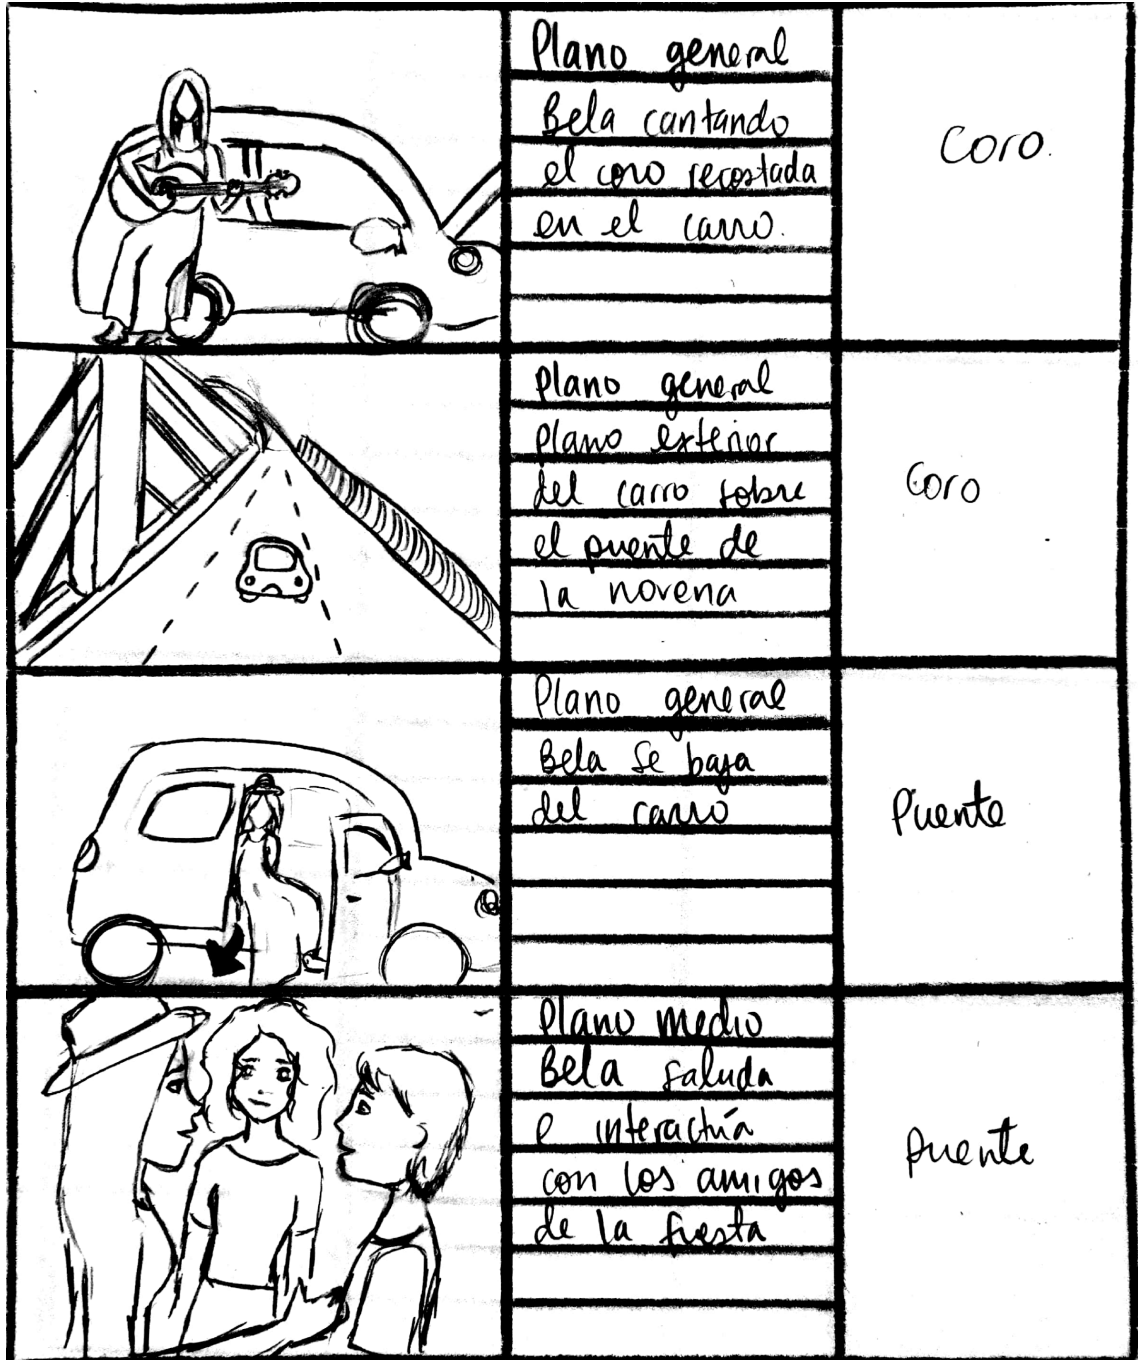 Plano general
Bela cantando
el coro recostada
en el carro.
Coro.
plano general
plano exterior
del carro sobre
el puente de
la novena
Coro
Plano general
Bela se baja
del carro
Puente
Plano medio
Bela saluda
e interactúa
con los amigos
de la fiesta
puente